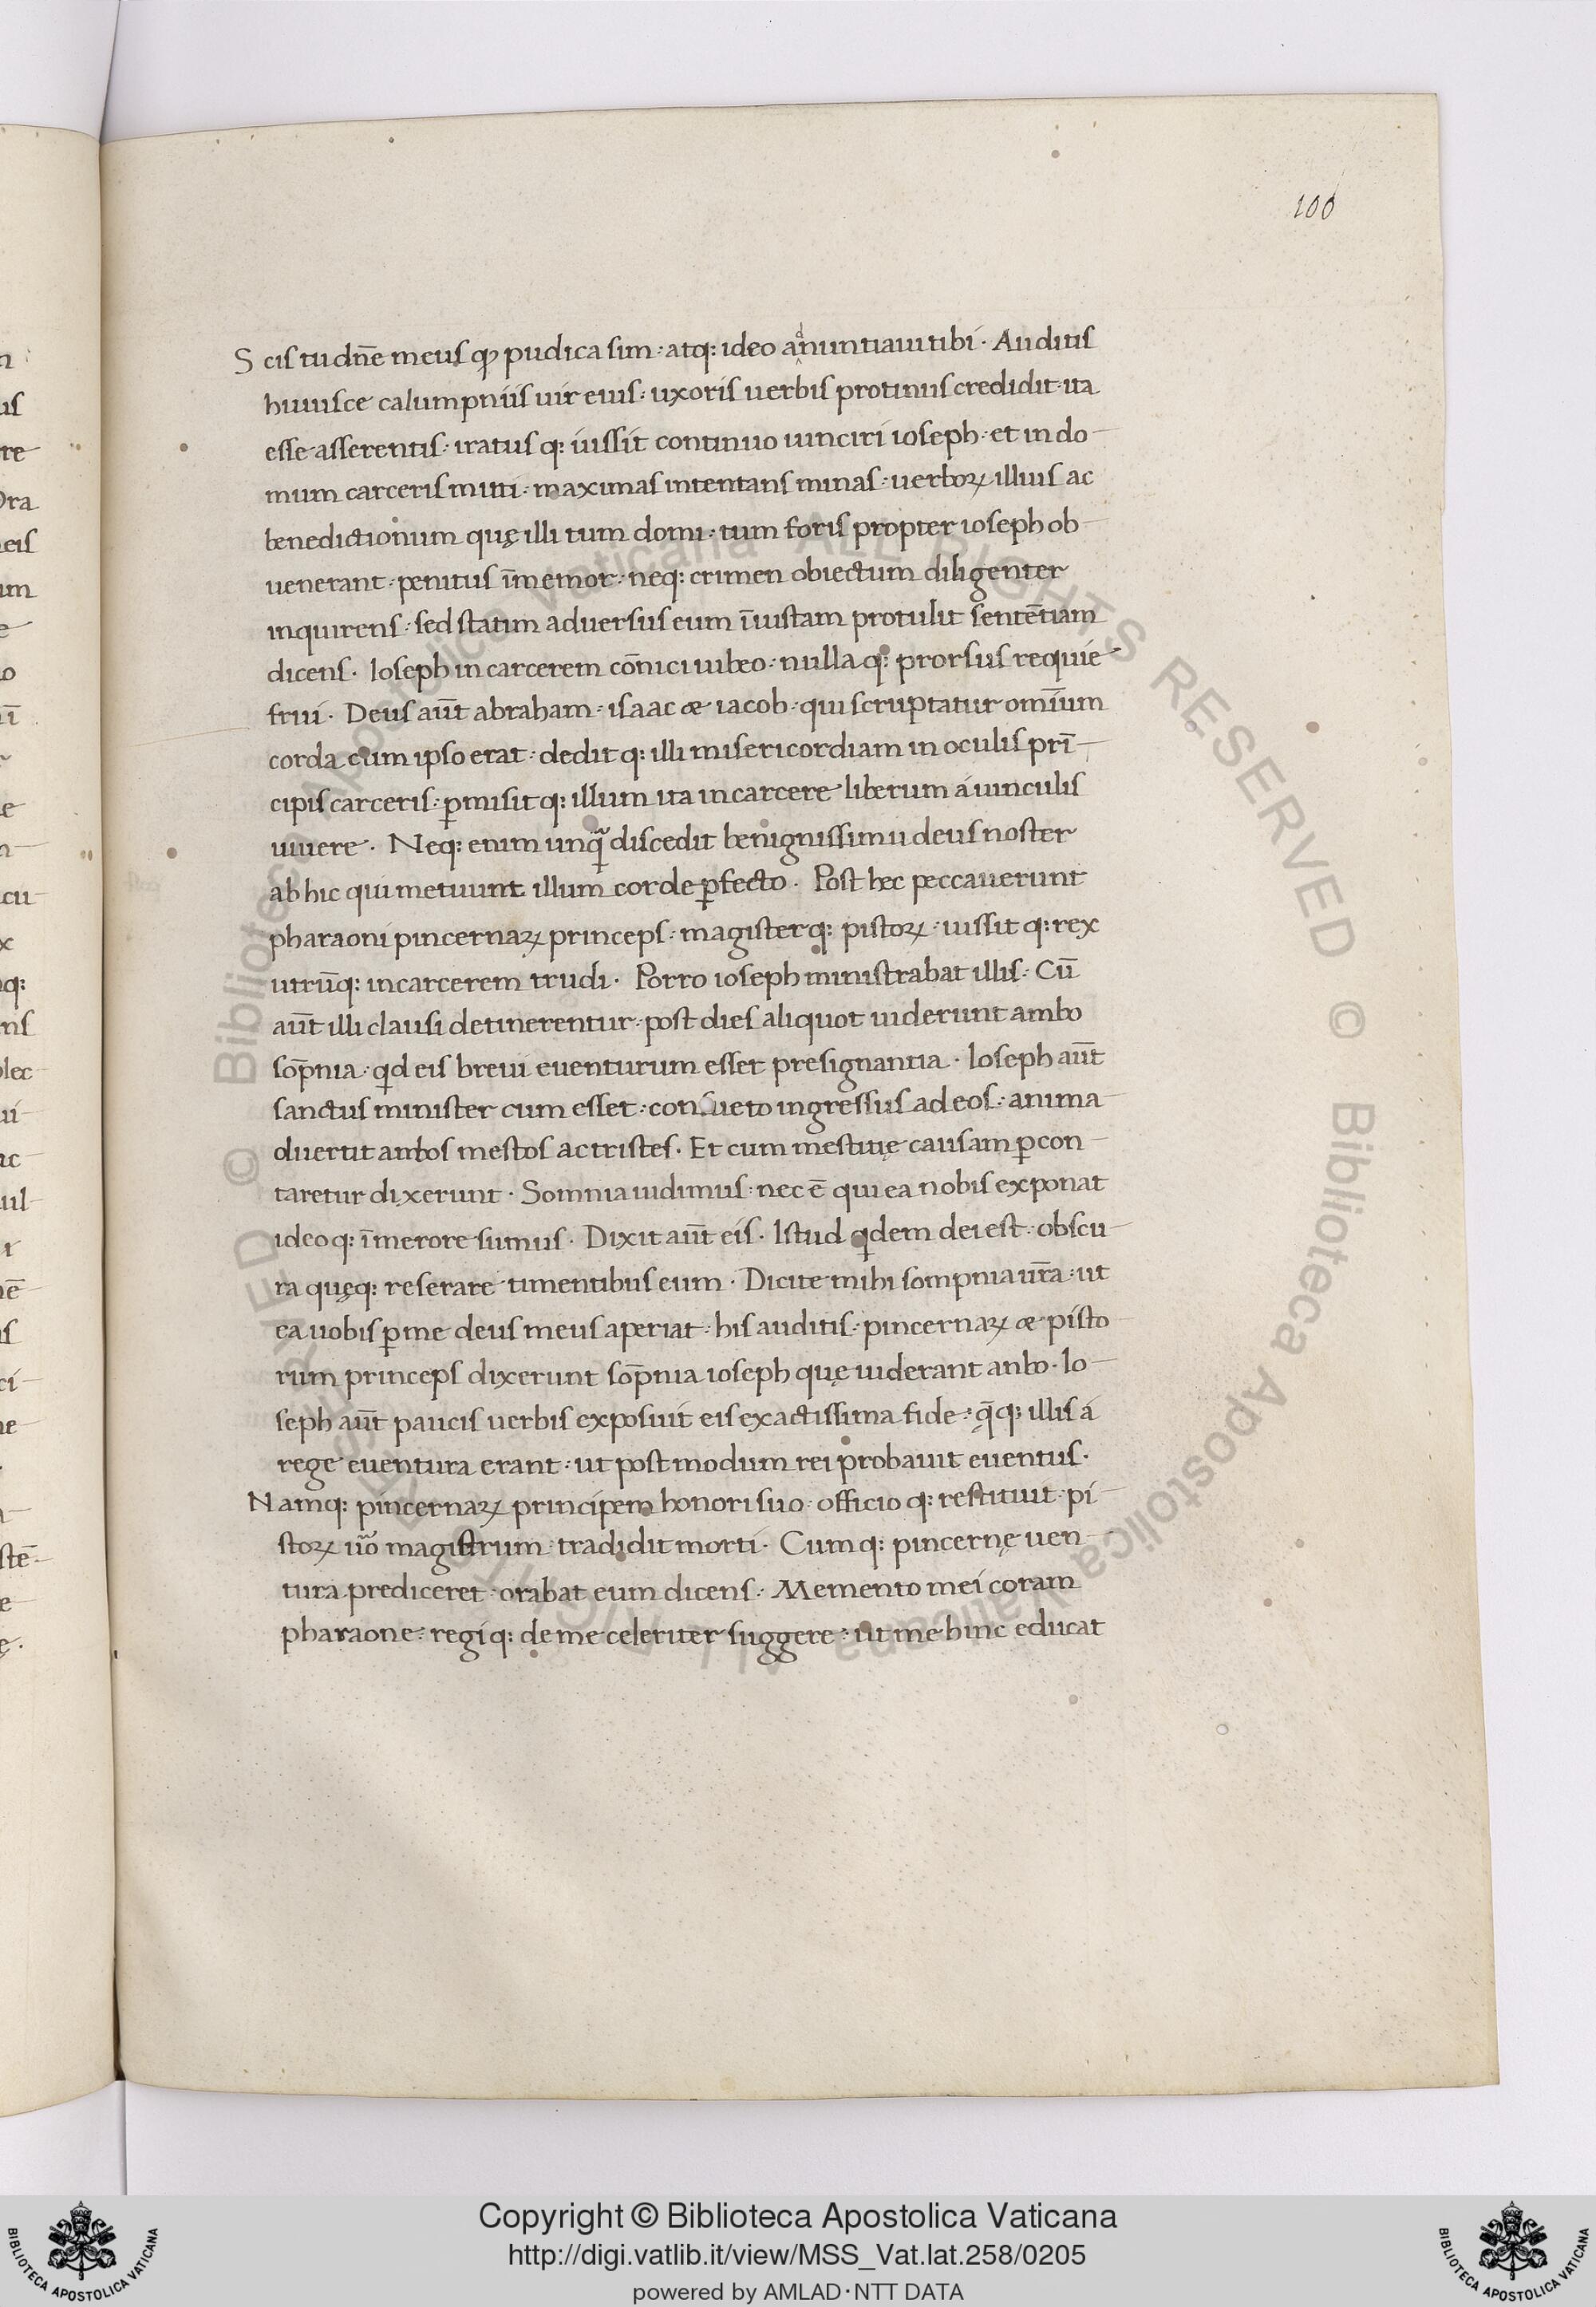 100
Scis tu dn̄e meus ꝙ pudica sim · atq: ideo adnuntiaui tibi · Auditis
huiusce calumpniis uir eius · uxoris uerbis protinus credidit · ita
esse asserentis · iratus q: iussit continuo uinciri ioseph · et in do
mum carceris mitti · maximas intentans minas · uerboꝝ illius ac
benedictionum quę illi tum domi · tum foris propter ioseph ob
uenerant · penitus īmemor · neq: crimen obiectum diligenter
inquirens · sed statim aduersus eum īiustam protulit sentētiam
dicens · Ioseph in carcerem cōnici iubeo · nulla q: prorsus requie
frui · Deus aūt abraham · isaac & iacob · qui scruptatur omīum
corda cum ipso erat · dedit q: illi misericordiam in oculis prī
cipis carceris · ꝑmisit q: illum ita in carcere liberum á uinculis
uiuere · Neq: enim unq̄ discedit benignissimu deus noster
ab hic qui metuunt illum corde ꝑfecto · Post hec peccauerunt
pharaoni pincernaꝝ princeps · magister q: pistoꝝ · iussit q: rex
utrūq: in carcerem trudi · Porro ioseph ministrabat illis · Cū
aūt illi clausi detinerentur · post dies aliquot uiderunt ambo
sop̄nia · qd eis breui euenturum esset presignantia · Ioseph aūt
sanctus minister cum esset · consueto ingressus ad eos · anima
duertit anbos mestos ac tristes · Et cum mestitię causam ꝑcon
taretur dixerunt · Somnia uidimus · nec ē qui ea nobis exponat
ideo q: ī merore sumus · Dixit aūt eis · Istud qdem dei est · obscu
ra quęq: reserare timentibus eum · Dicite mihi sompnia ur̄a · ut
ea uobis ꝑ me deus meus aperiat · his auditis · pincernaꝝ & pisto
rum princeps dixerunt sop̄nia ioseph quę uiderant anbo · Io
seph aūt paucis uerbis exposuit eis exactissima fide · q̨̄q: illis á
rege euentura erant · ut post modum rei probauit euentus ·
Namq: pincernaꝝ principem honori suo · officio q: restituit · pi
stoꝝ u̅o magistrum · tradidit morti · Cum q: pincernę uen
tura prediceret · orabat eum dicens · Memento mei coram
pharaone · regi q: de me celeriter suggere · ut me hinc educat
© Biblioteca Apostolica Vaticana ALL RIGHTS RESERVED
© Biblioteca Apostolica Vaticana ALL RIGHTS RESERVED
Copyright © Biblioteca Apostolica Vaticana
http://digi.vatlib.it/view/MSS_Vat.lat.258/0205
powered by AMLAD · NTT DATA
BIBLIOTECA APOSTOLICA VATICANA
BIBLIOTECA APOSTOLICA VATICANA